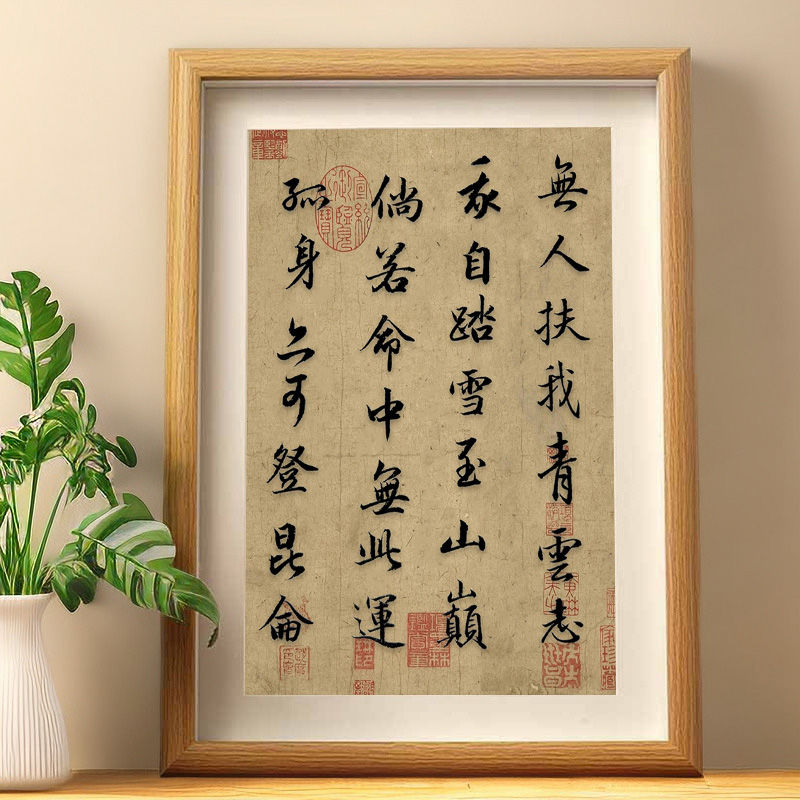 無人扶我青雲志
我自踏雪至山巔
倘若命中無此運
孤身亦可登昆侖